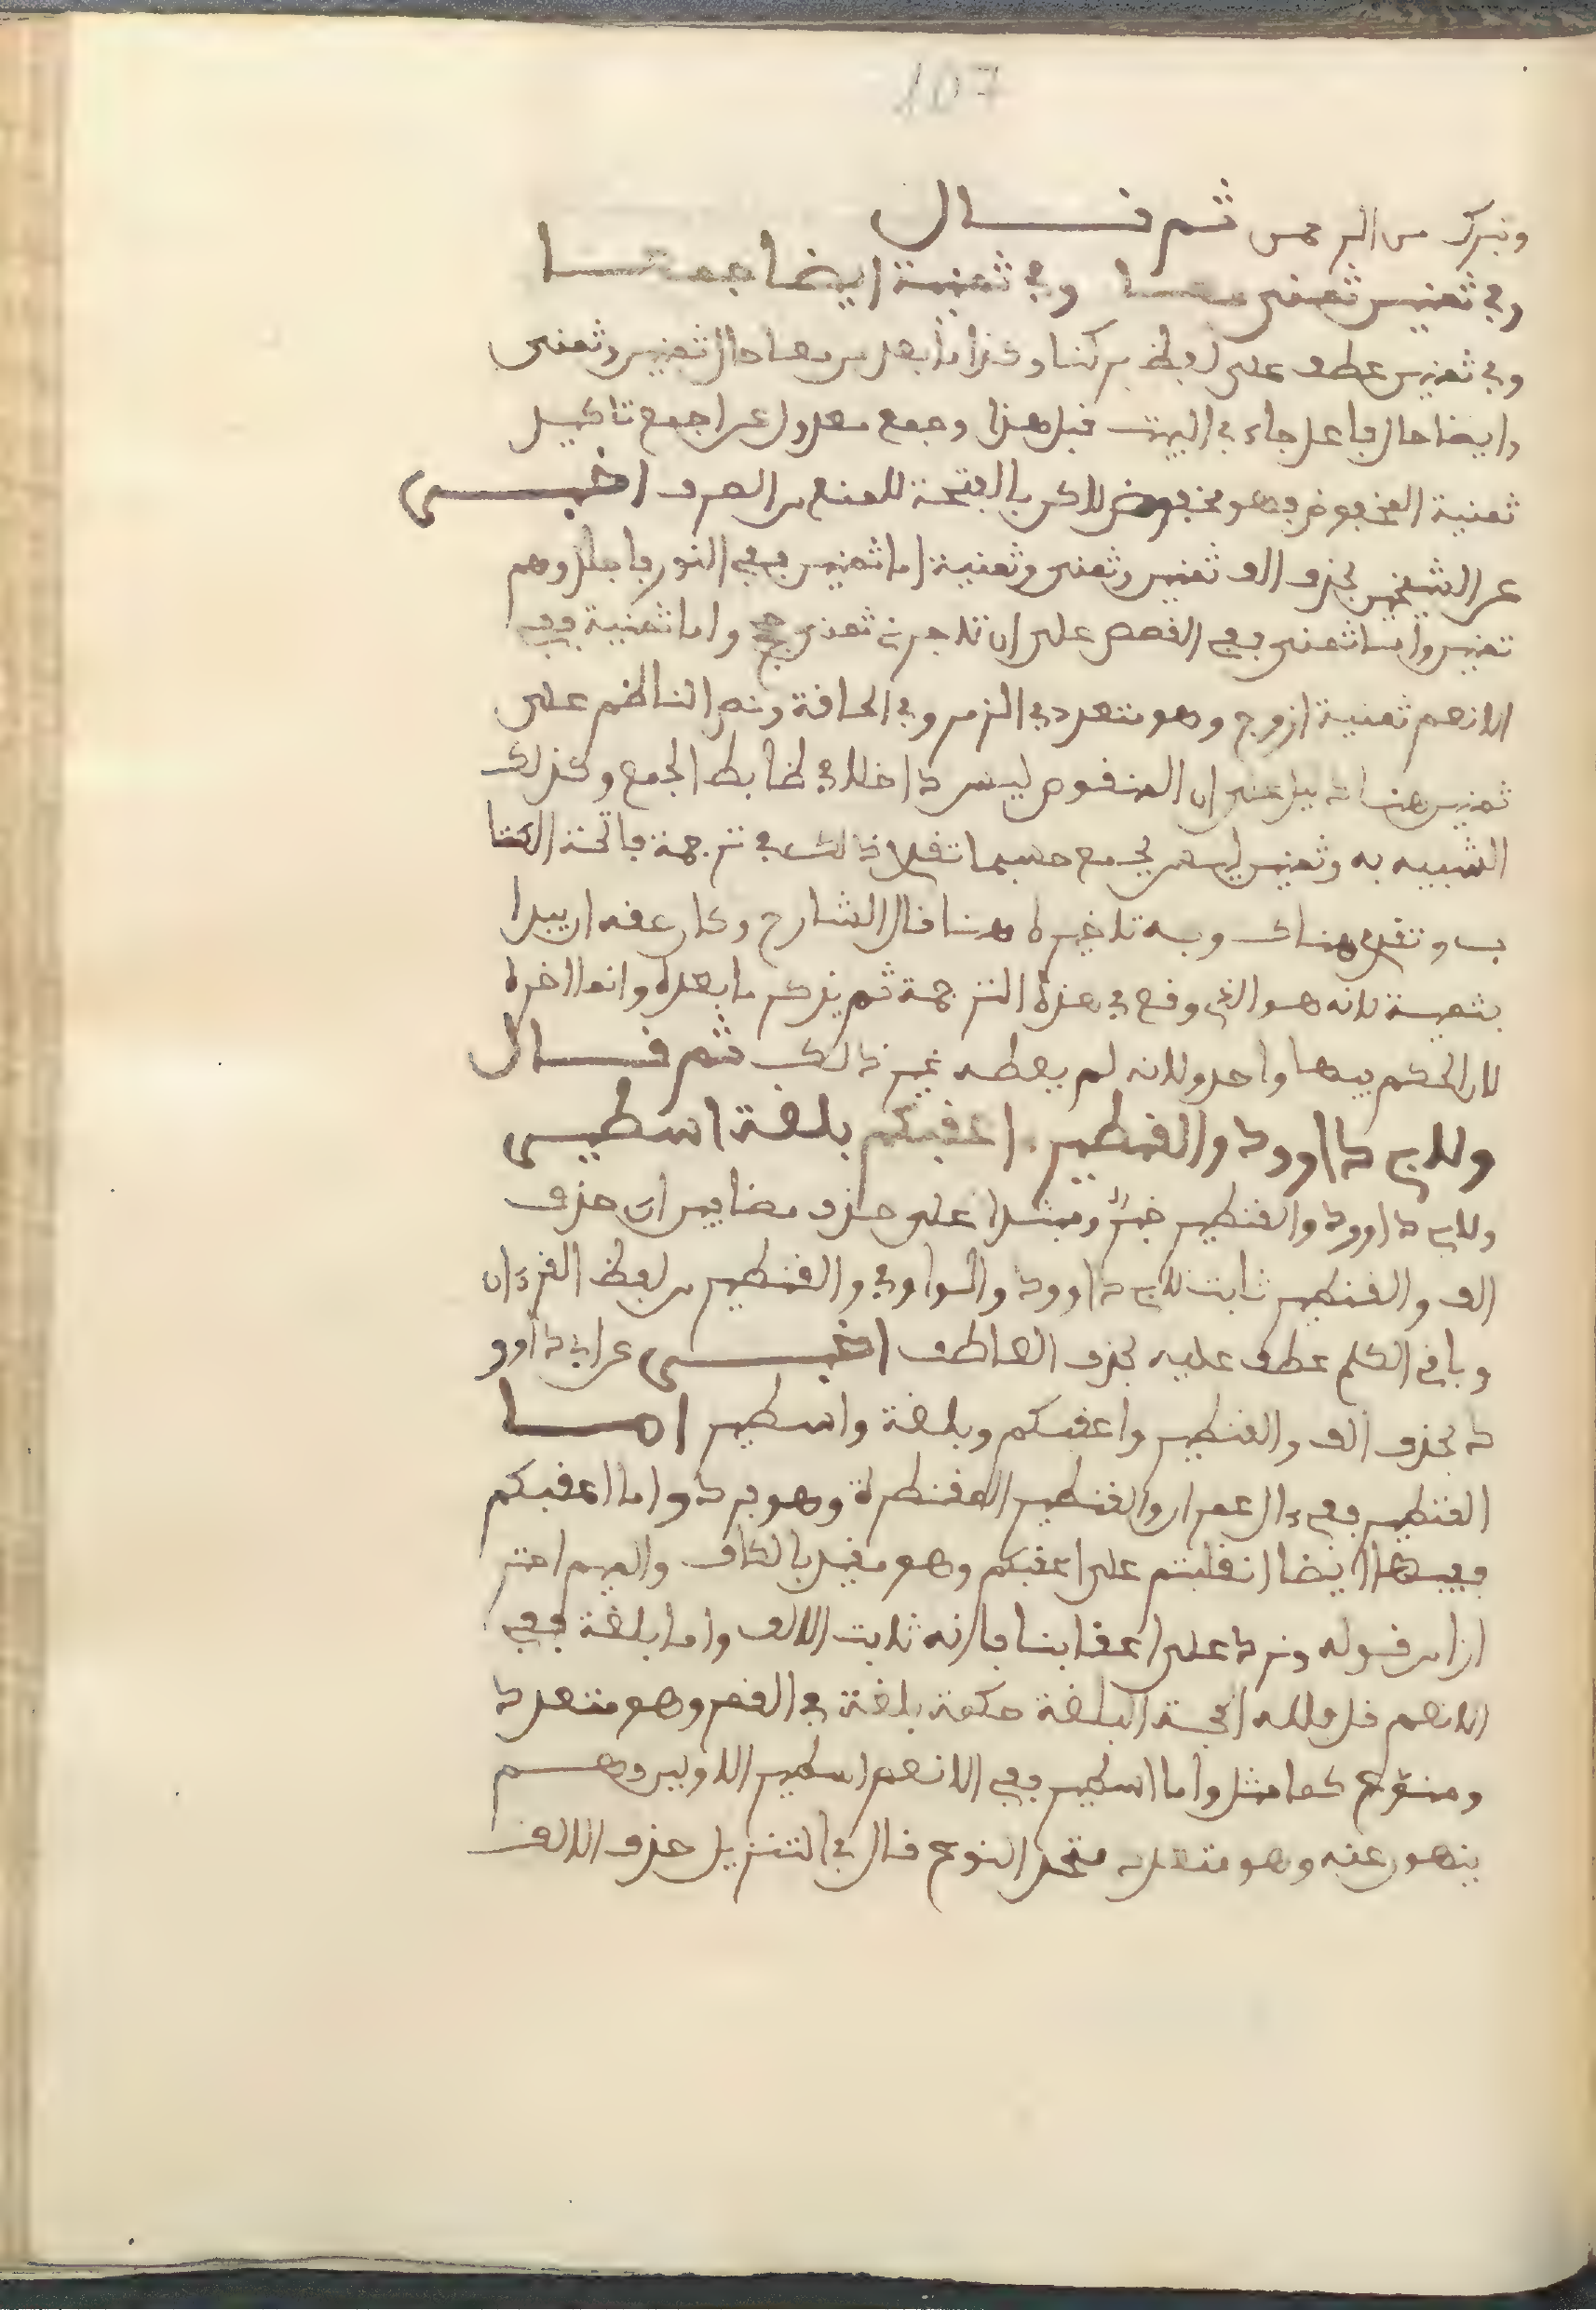 107
وتبرك من الرحمن ثم قال
وفي ثمنين ثمنى معا وفي ثمنية ايضا جمعا
وفي ثمنين عطف على لفظ بركنا وكذا ما بعد من معا حال ثمنين وثمنى
وايضا حال فاعل جاء في البيت قبل هذا وجمع معدول عن اجمع تاكيد
ثمنية المخفوض فهو مخفوض لاكن بالفتحة للمنع من الصرف اخبــــر
عن الشيخين بحذف الف ثمنين وثمنى وثمنية اما ثمنين ففي النور فاجلدوهم
ثمنين واما ثمنى ففي القصص على ان تاجرني ثمنى حجج واما ثمنية ففي
الانعم ثمنية ازوج وهو متعدد في الزمر وفي الحاقة ونص الناظم على
ثمنين هنا دليل على ان المنقوص ليس داخلا في ظابط الجمع وكذلك
الشبيه به وثمنين ليس بجمع حسبما تقدم ذالك في ترجمة فاتحة الكتا
ب وتقدم هناك وبه تاخيره هنا قال الشارح وكان حقه ان يبدا
بثمنية لانه هو الذي وقع في هذه الترجمة ثم يذكر ما بعده وانما اخره
لان الحكم فيها واحد ولانه لم يعطه غير ذالك ثم قــــال
ولابي داوود والقنطير اعقبكم بلغة اسطير
ولابي داوود والقنطير خبر ومبتدا على حذف مضافين اي حذف
الف والقنطير ثابت لابي داوود والواو في والقنطير من لفظ القرءان
وباقي الكلم عطف عليه بحذف العاطف اخبــــر عن ابي داوو
د بحذف الف والقنطير واعقبكم وبلغة واسطير امــــا
القنطير ففي ءال عمران والقنطير المقنطرة وهو فرد واما اعقبكم
ففيها ايضا انقلبتم على اعقبكم وهو مقيد بالكاف والميم احتر
ازا من قوله ونرد على اعقابنا فانه ثابت الالف واما بلغة ففي
الانعم قل فلله الحجة البلغة حكمة بلغة في القمر وهو متعدد
ومنوع كما مثل واما اسطير ففي الانعم اسطير الاولين وهــم
ينهون عنه وهو متعدد متحد النوع قال في التنزيل حذف الالف